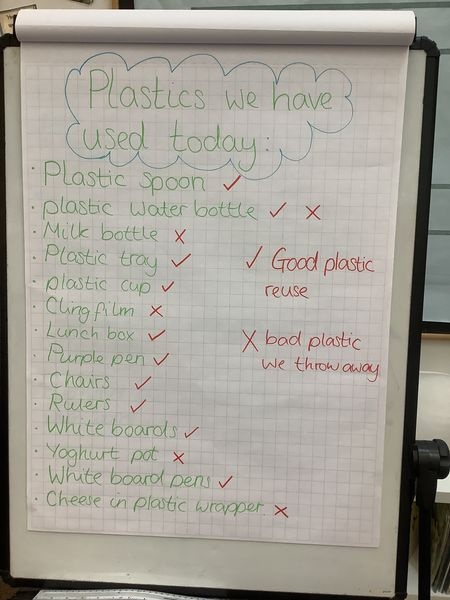 Plastics we have
used today:
· Plastic spoon ✓
· plastic water bottle ✓ ✗
· Milk bottle ✗
· Plastic tray ✓
· plastic cup ✓
· Cling film ✗
· Lunch box ✓
· Purple pen ✓
· Chairs ✓
· Rulers ✓
· White boards ✓
· Yoghurt pot ✗
· White board pens ✓
· Cheese in plastic wrapper. ✗
✓ Good plastic
reuse
✗ bad plastic
we throw away